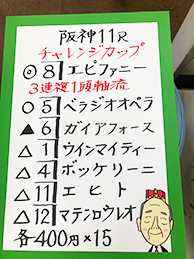 阪神11R
チャレンジカップ
◎8エピファニー
3連複1頭軸流
○5ベラジオオペラ
▲6ガイアフォース
△1ウインマイティー
△4ボッケリーニ
△11エヒト
△12マテンロウレオ
各400円×15